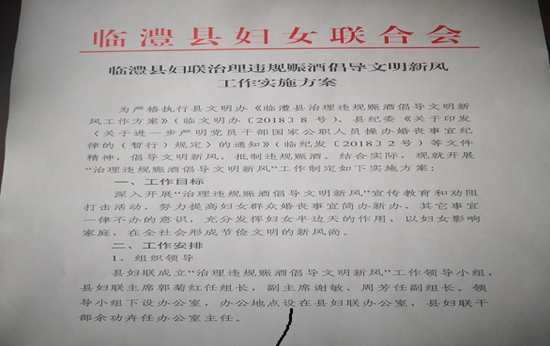 临澧县妇女联合会
临澧县妇联治理违规赈酒倡导文明新风
工作实施方案
为严格执行县文明办《临澧县治理违规赈酒倡导文明新
风工作方案》（临文明办〔2018〕8 号）、县纪委《关于印发
〈关于进一步严明党员干部国家公职人员操办婚丧事宜纪
律的（暂行）规定〉的通知》（临纪发〔2018〕2 号）等文件
精神，倡导文明新风，抵制违规赈酒。结合实际，现就开展
“治理违规赈酒倡导文明新风”工作制定如下实施方案：
一、工作目标
深入开展“治理违规赈酒倡导文明新风”宣传教育和劝阻
打击活动，努力提高妇女群众婚丧事宜简办新办、其它事宜
一律不办的意识，充分发挥妇女半边天的作用，以妇女影响
家庭，在全社会形成节俭文明的新风尚。
二、工作安排
1、组织领导
县妇联成立“治理违规赈酒倡导文明新风”工作领导小组，
县妇联主席郭菊红任组长，副主席谢敏、周芳任副组长。领
导小组下设办公室，办公地点设在县妇联办公室，县妇联干
部余功卉任办公室主任。